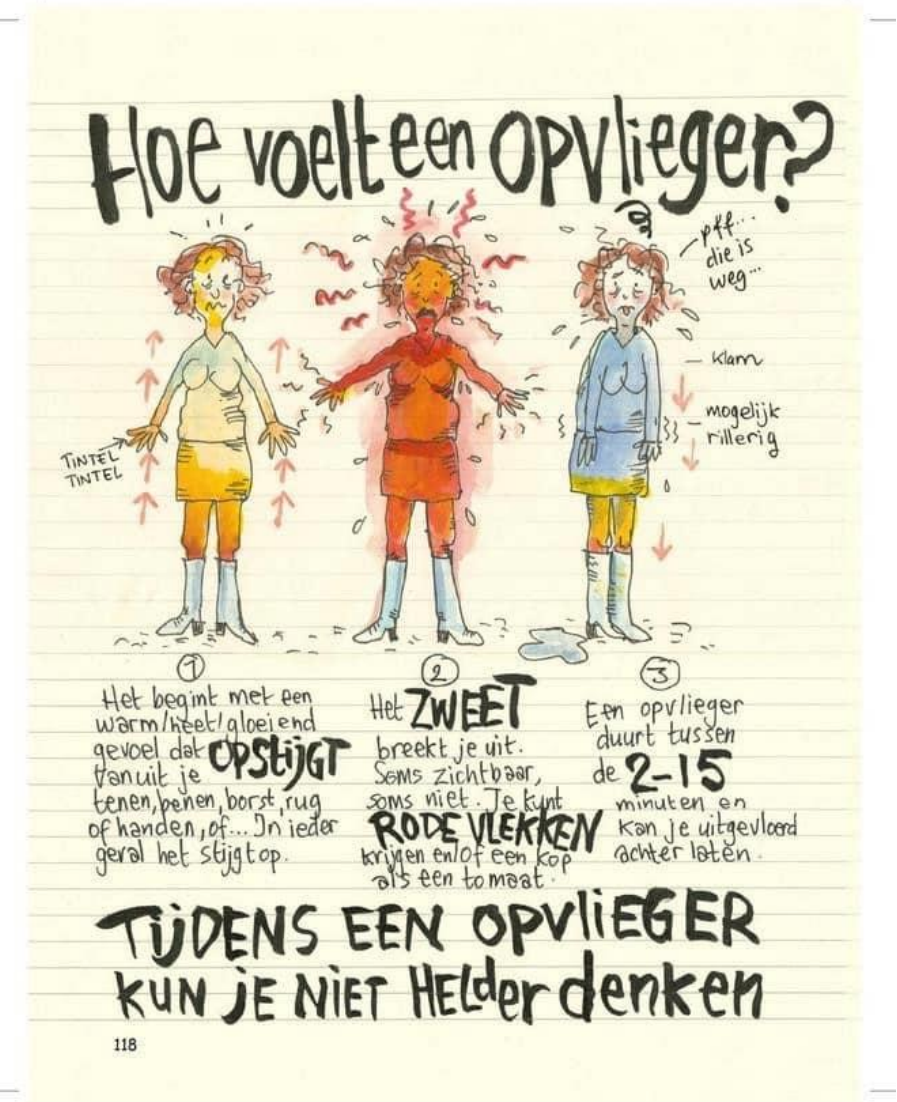 Hoe voelt een OPVlieger?
pff...
die is
weg...
klam
mogelijk
rillerig
TINTEL
TINTEL
1
Het begint met een
warm/heet/gloeiend
gevoel dat OPSTIJGT
vanuit je
tenen, benen, borst, rug
of handen, of... In ieder
geval het stijgt op.
2
Het ZWEET
breekt je uit.
Soms zichtbaar,
soms niet. Je kunt
RODE VLEKKEN
krijgen en/of een kop
als een tomaat.
3
Een opvlieger
duurt tussen
de 2-15
minuten en
kan je uitgevloerd
achter laten.
TIJDENS EEN OPVlIEGER
KUN JE NIET HELder denken
118